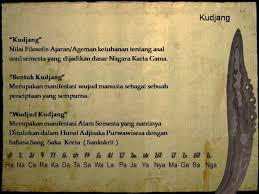 Kudjang
"Kudjang"
Nilai Filosofis Ajaran/Ageman ketuhanan tentang asal
usul semesta yang dijadikan dasar Nagara Karta Gama.
"Bentuk Kudjang"
Merupakan manifestasi wujud manusia sebagai sebuah
penciptaan yang sempurna.
"Wudjud Kudjang"
Merupakan manifestasi Alam Semesta yang nantinya
Dituliskan dalam Huruf Adjisaka Purwawisesa dengan
bahasa Sang Saka Kreta ( Sankskrit )
Ha Na Ca Ra Ka Da Ta Sa Wa La Pa Ja Ya Nya Ma Ga Ba Nga